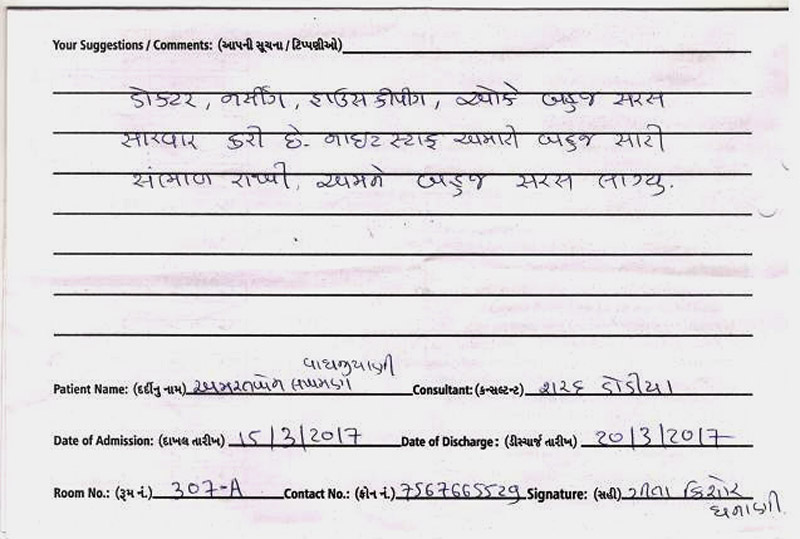 Your Suggestions / Comments: (આપની સૂચના / ટિપ્પણીઓ)
ડોકટર, નર્સીંગ, હાઉસ કીપીંગ, બહુજ સરસ
સારવાર કરી છે. નાઇટ સ્ટાફ અમારી બહુજ સારી
સંભાળ રાખી, અમને બહુજ સરસ લાગ્યુ.
Patient Name: (દર્દીનુ નામ) Consultant: (કન્સલ્ટન્ટ) શરદ ડોડીયા
Date of Admission: (દાખલ તારીખ) 15/3/2017 Date of Discharge: (ડીસ્ચાર્જ તારીખ) 20/3/2017
Room No.: (રૂમ નં.) 307-A Contact No.: (ફોન નં.) 7567665529 Signature: (સહી) ગીતા કિશોર